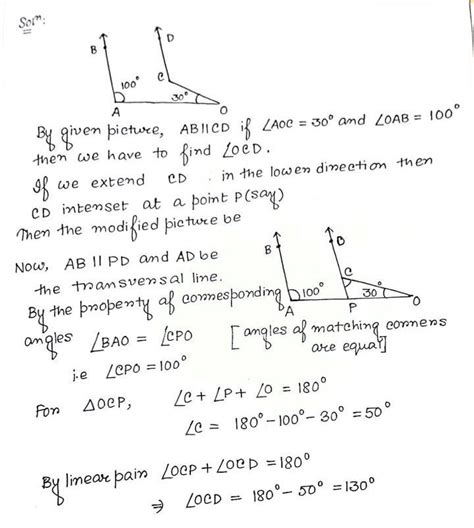 Solⁿ:
B
D
C
100°
30°
A
O
By given picture, AB||CD if ∠AOC = 30° and ∠OAB = 100°
then we have to find ∠OCD.
If we extend CD in the lower direction then
CD interset at a point P(say)
Then the modified picture be
Now, AB || PD and AO be
the transversal line.
By the property of corresponding
angles ∠BAO = ∠CPO [angles of matching corners
are equal]
i.e ∠CPO = 100°
B
D
C
100°
30°
A
P
O
For △OCP, ∠C + ∠P + ∠O = 180°
∠C = 180° - 100° - 30° = 50°
By linear pair ∠OCP + ∠OCD = 180°
⇒ ∠OCD = 180° - 50° = 130°